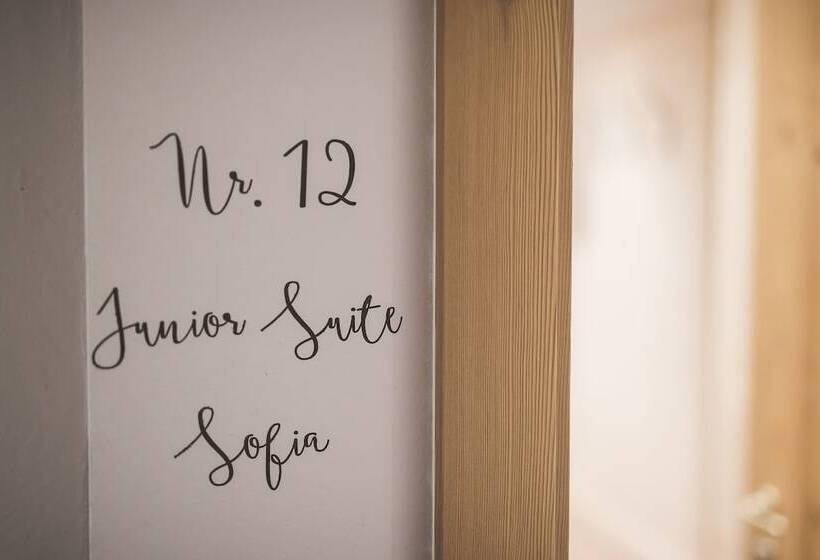 Nr. 12
Junior Suite
Sofia